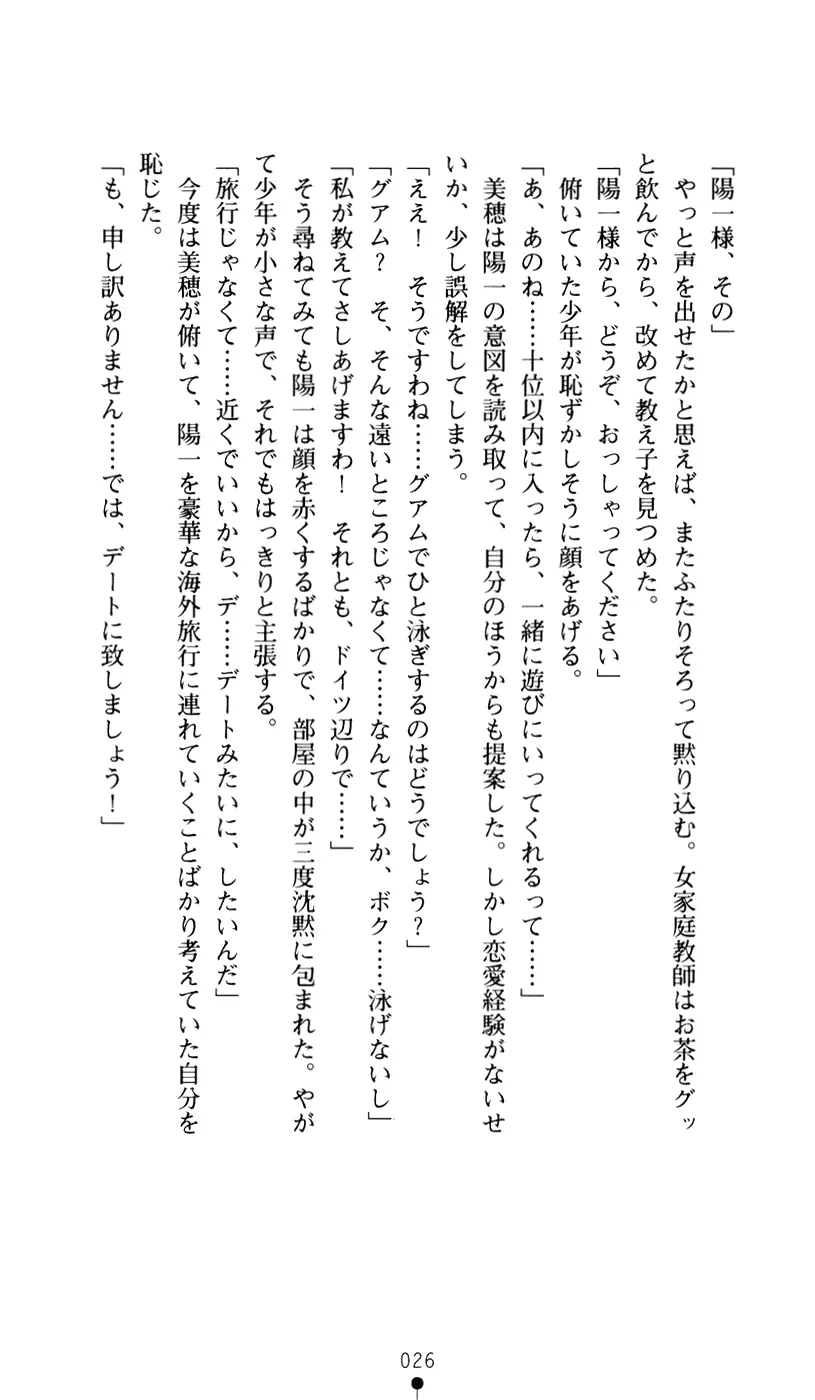 「陽一様、その」
　やっと声を出せたかと思えば、またふたりそろって黙り込む。女家庭教師はお茶をグッ
と飲んでから、改めて教え子を見つめた。
「陽一様から、どうぞ、おっしゃってください」
　俯いていた少年が恥ずかしそうに顔をあげる。
「あ、あのね……十位以内に入ったら、一緒に遊びにいってくれるって……」
　美穂は陽一の意図を読み取って、自分のほうからも提案した。しかし恋愛経験がないせ
いか、少し誤解をしてしまう。
「ええ！　そうですわね……グアムでひと泳ぎするのはどうでしょう？」
「グアム？　そ、そんな遠いところじゃなくて……なんていうか、ボク……泳げないし」
「私が教えてさしあげますわ！　それとも、ドイツ辺りで……」
　そう尋ねてみても陽一は顔を赤くするばかりで、部屋の中が三度沈黙に包まれた。やが
て少年が小さな声で、それでもはっきりと主張する。
「旅行じゃなくて……近くでいいから、デ……デートみたいに、したいんだ」
　今度は美穂が俯いて、陽一を豪華な海外旅行に連れていくことばかり考えていた自分を
恥じた。
「も、申し訳ありません……では、デートに致しましょう！」
026